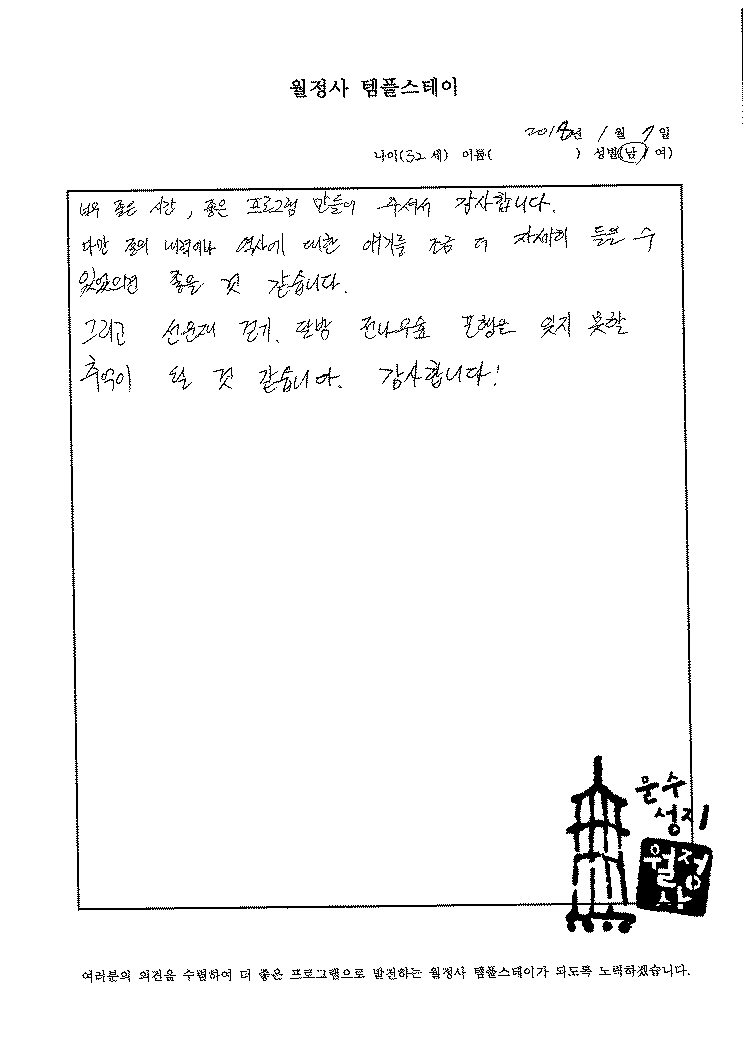 월정사 템플스테이
2018년 1월 7일
나이(32 세) 이름( ) 성별(남/여)
너무 좋은 시간, 좋은 프로그램 만들어 주셔서 감사합니다.
다만 절의 내력이나 역사에 대한 얘기를 조금 더 자세히 들을 수
있었으면 좋을 것 같습니다.
그리고 선재 걷기, 달밤 전나무숲 포행은 잊지 못할
추억이 될 것 같습니다. 감사합니다!
문수
성지
월정
사
여러분의 의견을 수렴하여 더 좋은 프로그램으로 발전하는 월정사 템플스테이가 되도록 노력하겠습니다.